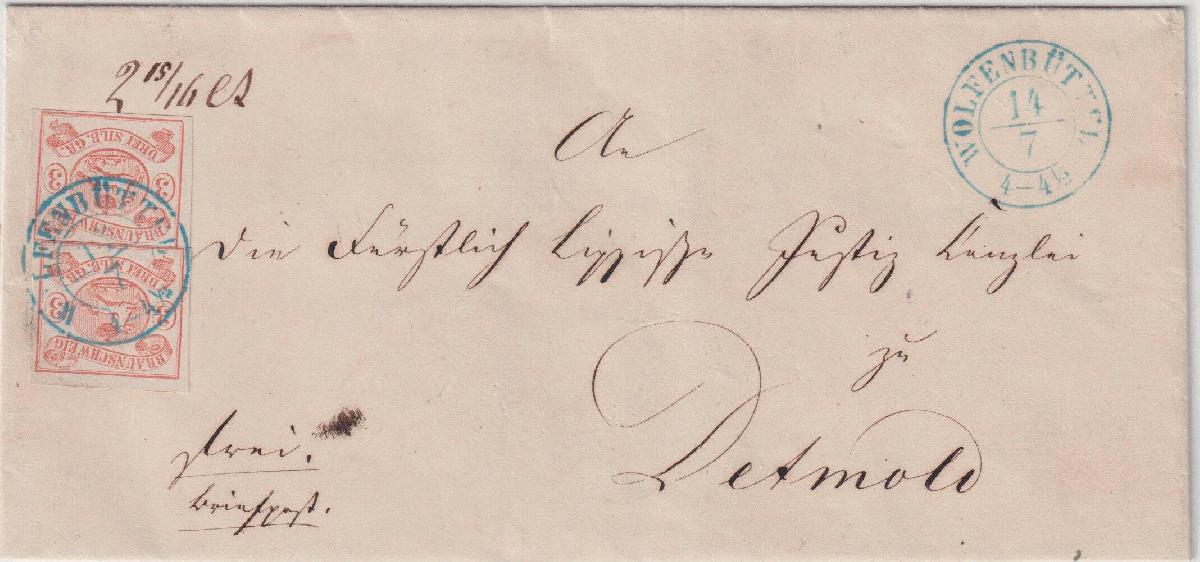 2 15/16
WOLFENBÜTTEL
14
7
4-4½
DREI SILB. GR.
3 3
BRAUNSCHWEIG
DREI SILB. GR.
3 3
BRAUNSCHWEIG
LFENBÜTTEL
An
die Fürstlich Lippische Justiz Canzlei
zu
Detmold
frei.
Briefpost.